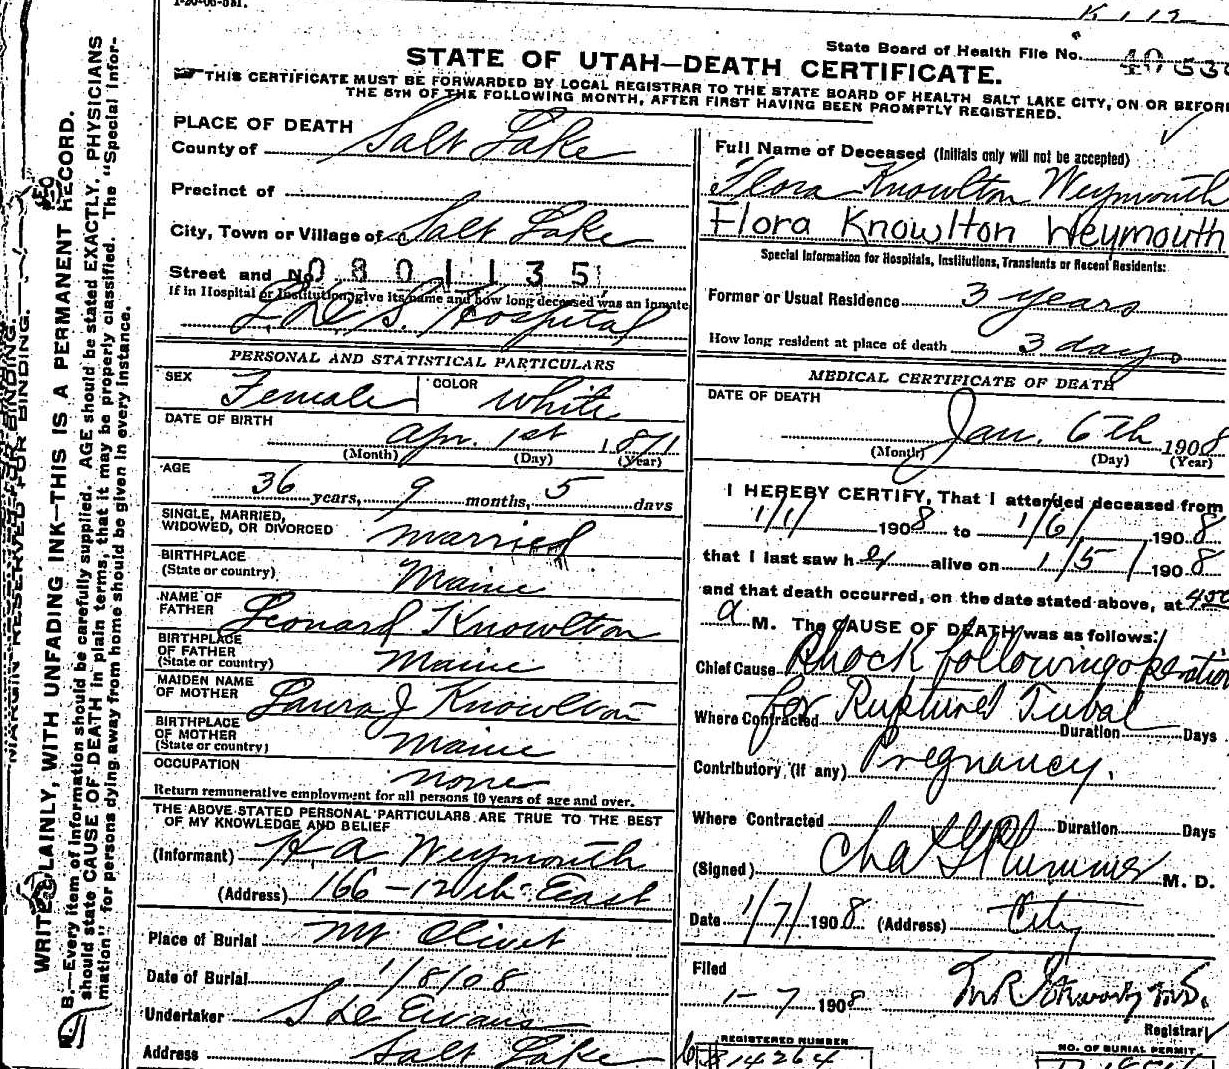 1-20-06-5M.
K 112
State Board of Health File No.
STATE OF UTAH—DEATH CERTIFICATE.
THIS CERTIFICATE MUST BE FORWARDED BY LOCAL REGISTRAR TO THE STATE BOARD OF HEALTH SALT LAKE CITY, ON OR BEFORE
THE 5TH OF THE FOLLOWING MONTH, AFTER FIRST HAVING BEEN PROMPTLY REGISTERED.
MARGIN RESERVED FOR BINDING.
WRITE PLAINLY, WITH UNFADING INK—THIS IS A PERMANENT RECORD.
B.—Every item of information should be carefully supplied. AGE should be stated EXACTLY. PHYSICIANS
should state CAUSE OF DEATH in plain terms, that it may be properly classified. The "Special Infor-
mation" for persons dying away from home should be given in every instance.
PLACE OF DEATH
County of Salt Lake
Precinct of
City, Town or Village of Salt Lake
Street and No. 0801135
If in Hospital or Institution, give its name and how long deceased was an inmate
L.D.S. Hospital
PERSONAL AND STATISTICAL PARTICULARS
SEX Female COLOR White
DATE OF BIRTH
Apr. 1st 1871
(Month) (Day) (Year)
AGE
36 years, 9 months, 5 days
SINGLE, MARRIED,
WIDOWED, OR DIVORCED married
BIRTHPLACE
(State or country) Maine
NAME OF
FATHER Leonard Knowlton
BIRTHPLACE
OF FATHER
(State or country) Maine
MAIDEN NAME
OF MOTHER Laura J Knowlton
BIRTHPLACE
OF MOTHER
(State or country) Maine
OCCUPATION none
Return remunerative employment for all persons 10 years of age and over.
THE ABOVE STATED PERSONAL PARTICULARS ARE TRUE TO THE BEST
OF MY KNOWLEDGE AND BELIEF
(Informant) H A Weymouth
(Address) 166 - 12th East
Place of Burial Mt Olivet
Date of Burial 1/8/08
Undertaker S D Evans
Address Salt Lake
Full Name of Deceased (Initials only will not be accepted)
Flora Knowlton Weymouth
Flora Knowlton Weymouth
Special Information for Hospitals, Institutions, Transients or Recent Residents:
Former or Usual Residence 3 years
How long resident at place of death 3 days
MEDICAL CERTIFICATE OF DEATH
DATE OF DEATH
Jan. 6th 1908
(Month) (Day) (Year)
I HEREBY CERTIFY, That I attended deceased from
1/1/ 1908 to 1/6/ 1908
that I last saw her alive on 1/5/ 1908
and that death occurred, on the date stated above, at
a M. The CAUSE OF DEATH was as follows:
Chief Cause Shock following operation
for Ruptured Tubal
Where Contracted Duration Days
Contributory (if any) Pregnancy.
Where Contracted Duration Days
(Signed) Chas G Plummer M. D.
Date 1/7/ 1908 (Address) City
Filed
1-7 1908
Registrar
REGISTERED NUMBER
14264
NO. OF BURIAL PERMIT